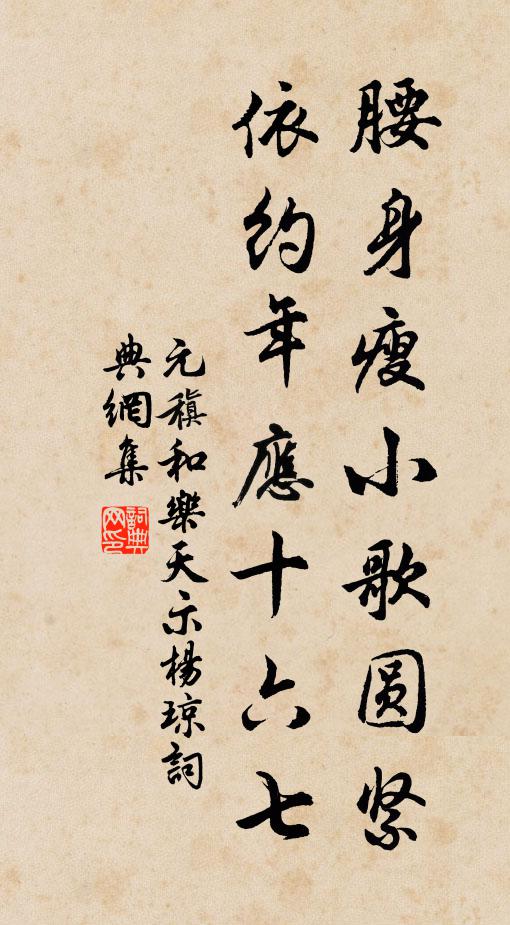 腰身瘦小歌圆紧
依约年應十六七
元稹和樂天示楊琼詞
典網集
詞典網印